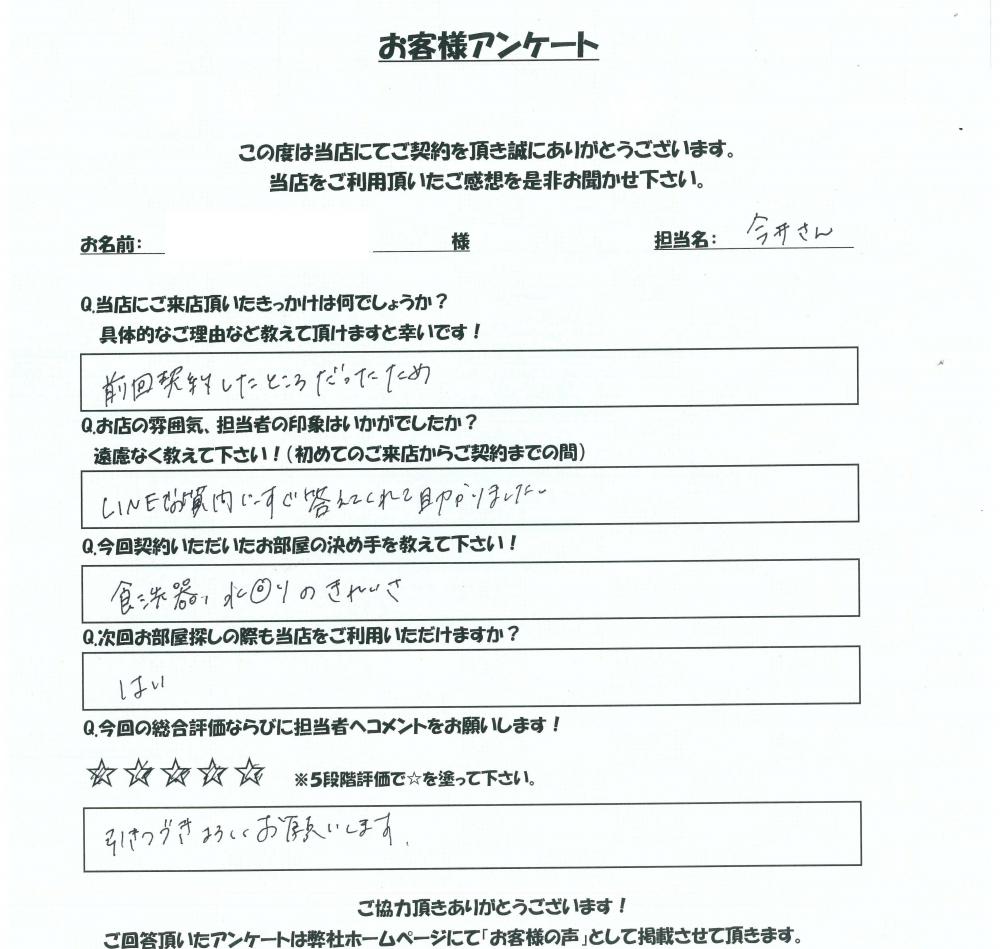 お客様アンケート
この度は当店にてご契約を頂き誠にありがとうございます。
当店をご利用頂いたご感想を是非お聞かせ下さい。
お名前: 様 担当名: 今井さん
Q.当店にご来店頂いたきっかけは何でしょうか?
具体的なご理由など教えて頂けますと幸いです!
前回契約したところだったため
Q.お店の雰囲気、担当者の印象はいかがでしたか?
遠慮なく教えて下さい!(初めてのご来店からご契約までの間)
LINEですぐ答えてくれて助かりました
Q.今回契約いただいたお部屋の決め手を教えて下さい!
食洗器、水回りのきれいさ
Q.次回お部屋探しの際も当店をご利用いただけますか?
はい
Q.今回の総合評価ならびに担当者へコメントをお願いします!
☆☆☆☆☆ ※5段階評価で☆を塗って下さい。
引きつづきよろしくお願いします.
ご協力頂きありがとうございます!
ご回答頂いたアンケートは弊社ホームページにて「お客様の声」として掲載させて頂きます。